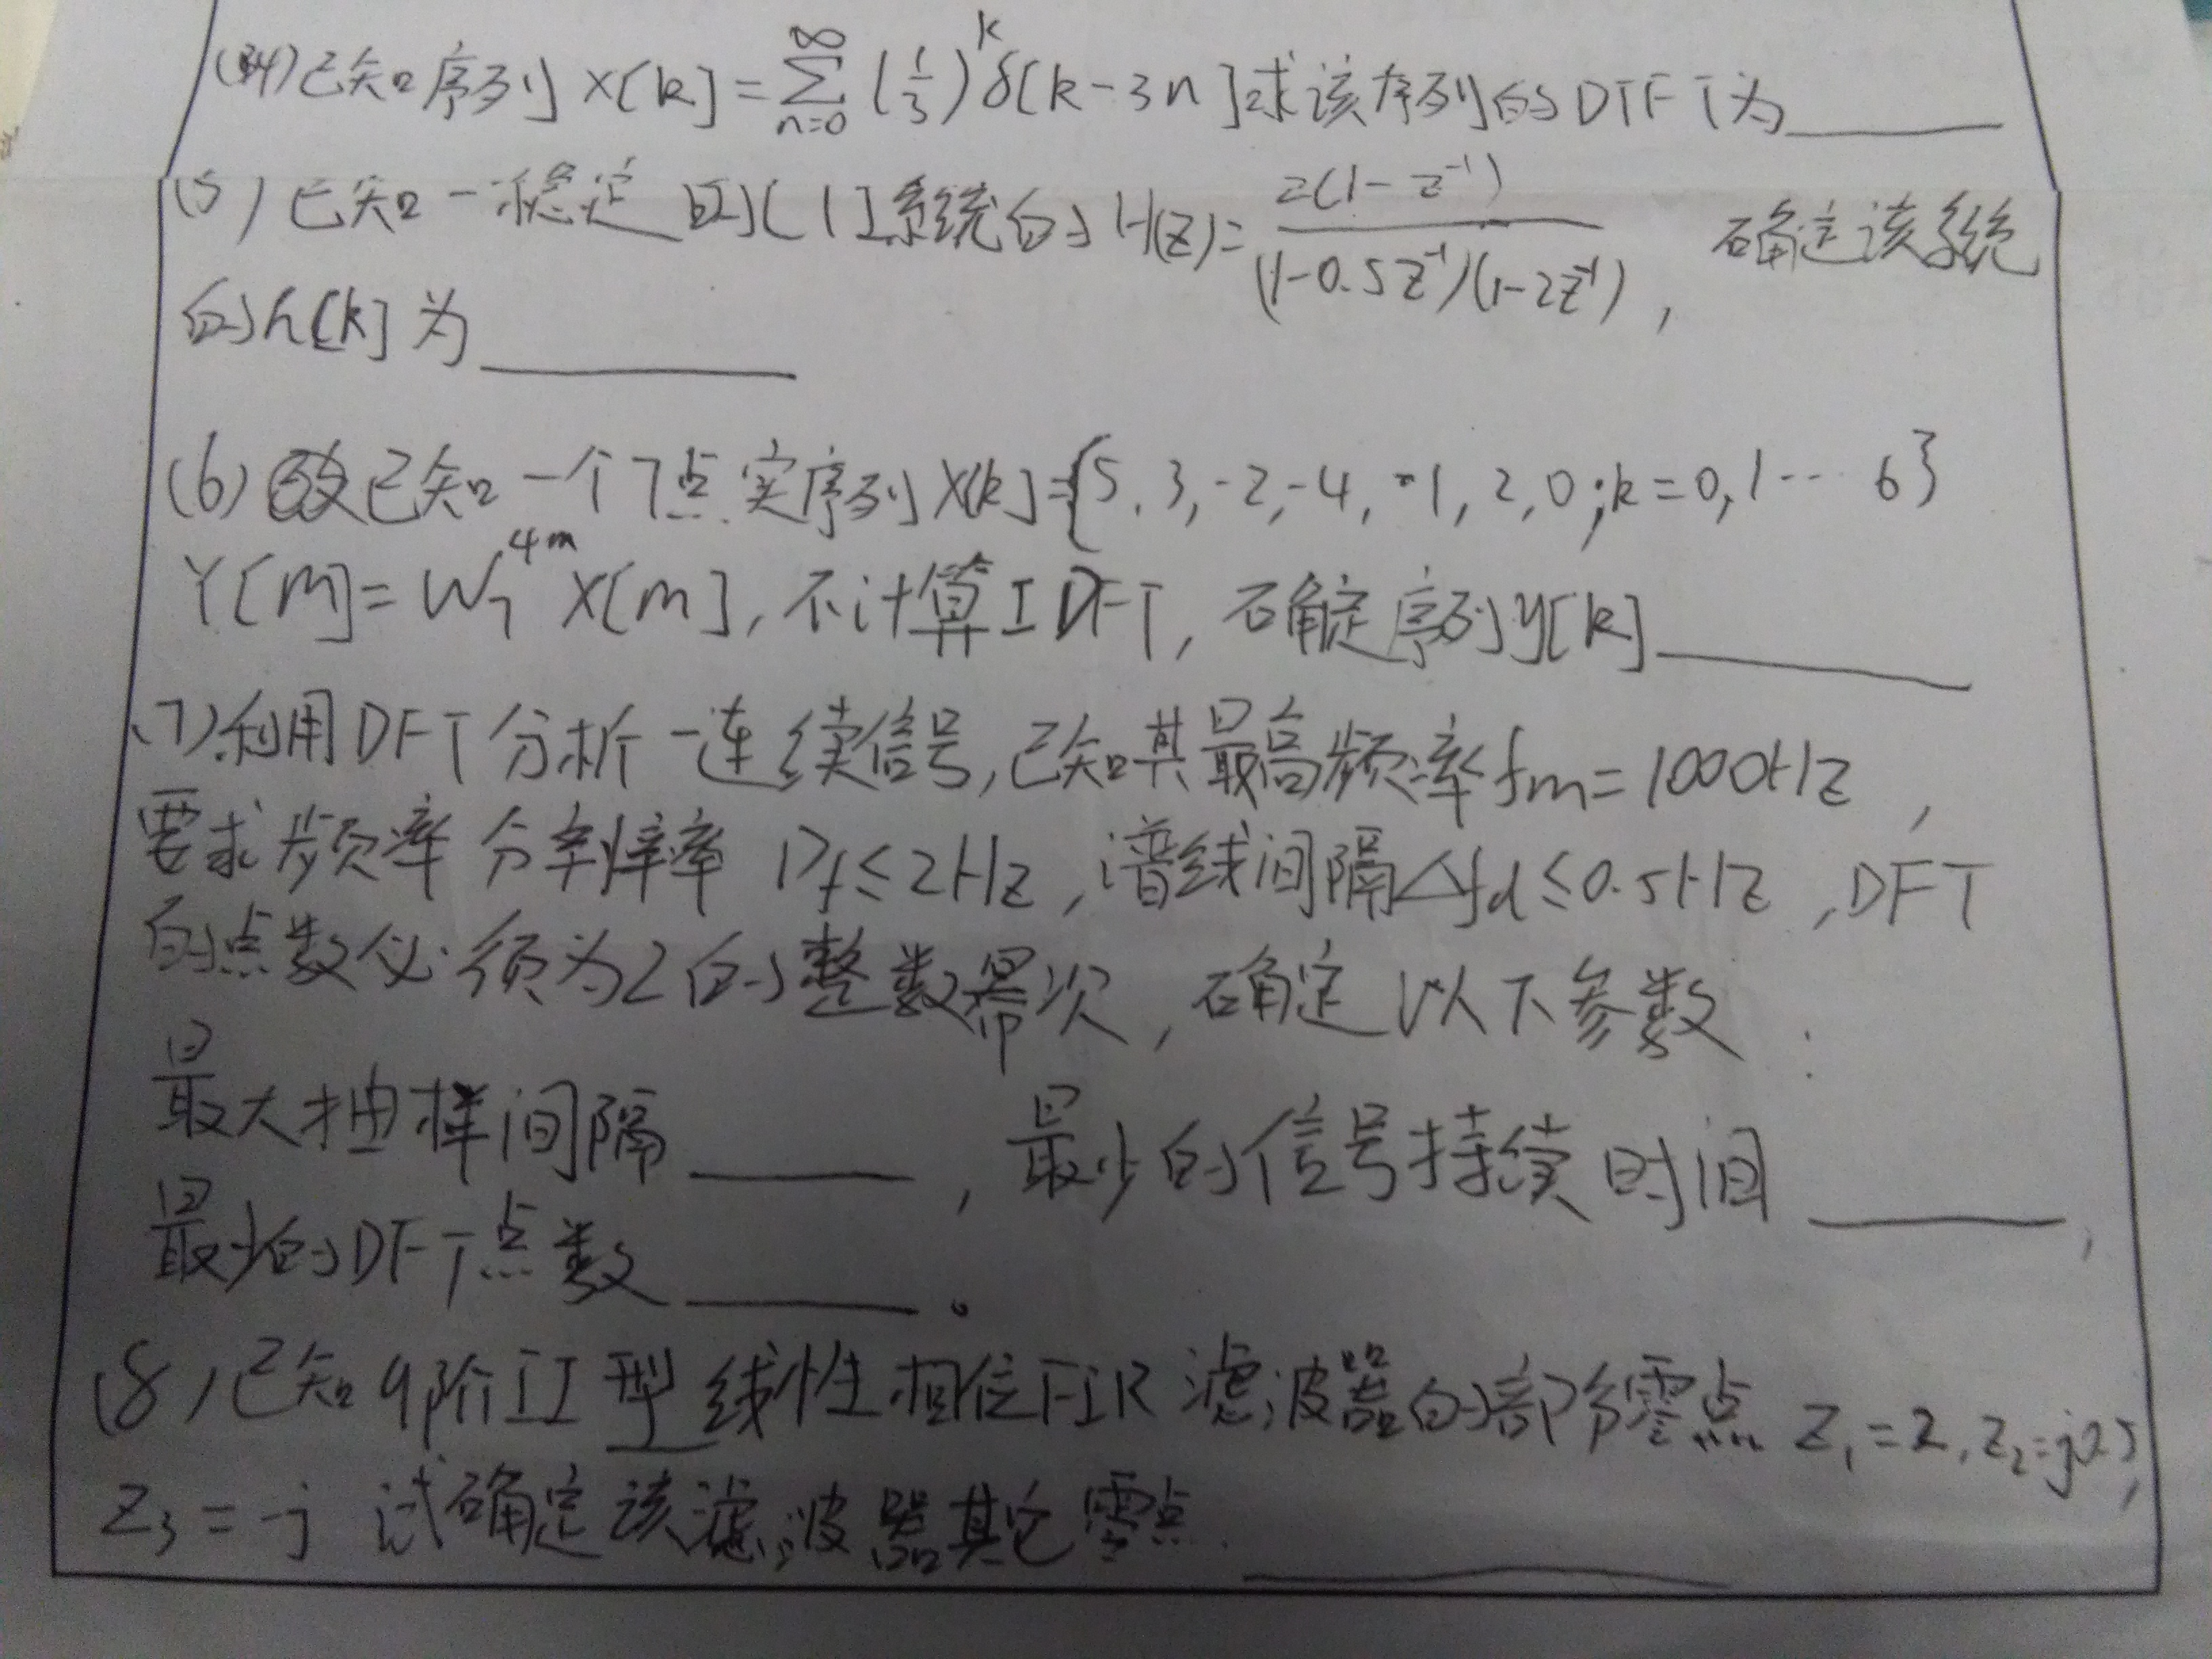 (4)已知序列 x[k]=∑_{n=0}^{∞}(1/3)^k δ[k-3n]求该序列的DTFT为______
(5)已知一稳定的LTI系统的H(z)=z(1-z^{-1})/((1-0.5z^{-1})(1-2z^{-1})), 确定该系统
的h[k]为______
(6)已知一个7点实序列x[k]={5,3,-2,-4,-1,2,0;k=0,1…6}
Y[m]=W_7^{4m}X[m],不计算IDFT,确定序列y[k]______
(7)利用DFT分析一连续信号,已知其最高频率fm=1000HZ,
要求频率分辨率Df≤2Hz,谱线间隔Δfd≤0.5HZ,DFT
的点数必须为2的整数幂次,确定以下参数:
最大抽样间隔______,最少的信号持续时间______,
最少的DFT点数______。
(8)已知9阶II型线性相位FIR滤波器的部分零点Z₁=2,Z₂=j0.5,
Z₃=-j 试确定该滤波器其它零点.______